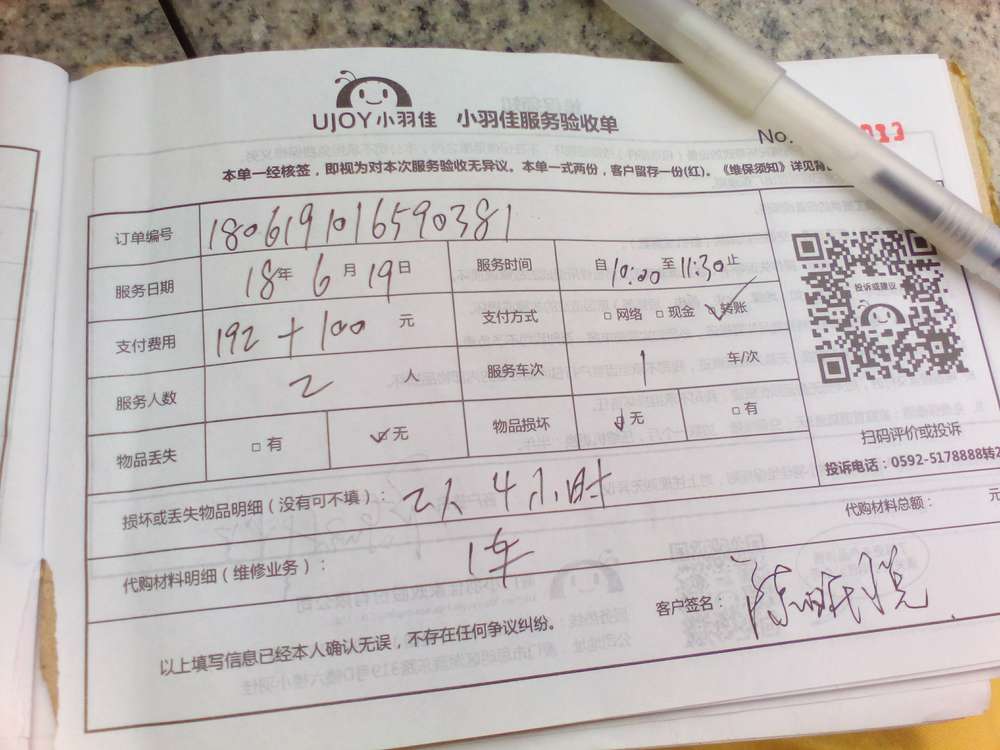 UJOY小羽佳 小羽佳服务验收单
No. 013
本单一经核签，即视为对本次服务验收无异议。本单一式两份，客户留存一份(红)。《维保须知》详见背
订单编号 1806191016590381
服务日期 18年 6月 19日 服务时间 自10:00至11:30止
支付费用 192+100 元 支付方式 □网络 □现金 ☑转账
服务人数 2 人 服务车次 1 车/次
物品丢失 □有 ☑无 物品损坏 ☑无 □有
投诉或建议
扫码评价或投诉
投诉电话：0592-5178888转2
损坏或丢失物品明细（没有可不填）： 2人4小时
代购材料明细（维修业务）： 1车 代购材料总额： 元
以上填写信息已经本人确认无误，不存在任何争议纠纷。 客户签名：